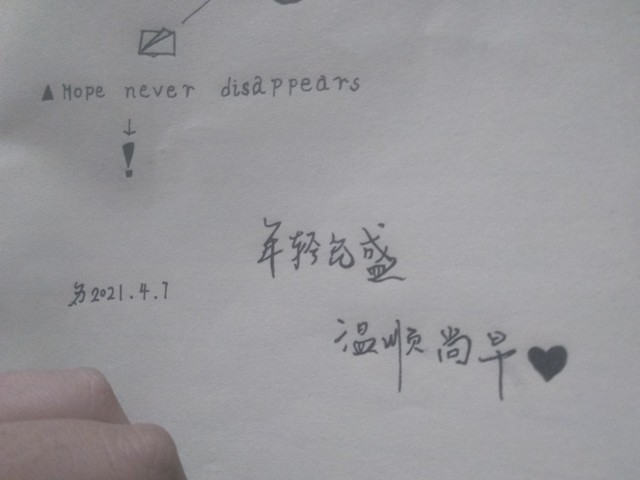 ▲Hope never disappears
↓
!
年轻气盛
为2021.4.7
温顺尚早♥